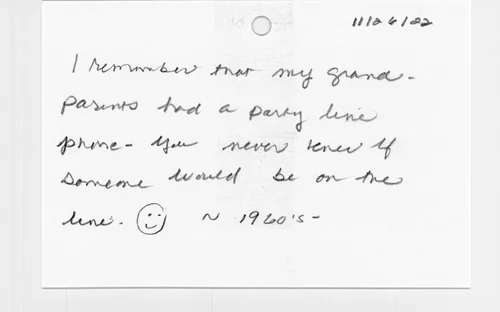 11/26/22
I remember that my grand-
parents had a party line
phone- You never knew if
someone would be on the
line. ~ 1960's -